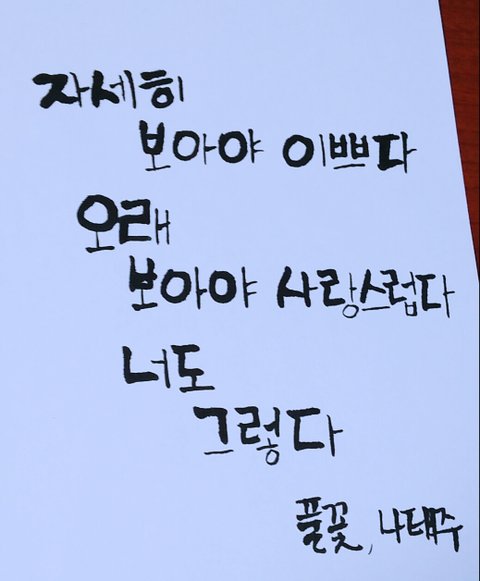 자세히
보아야 이쁘다
오래
보아야 사랑스럽다
너도
그렇다
풀꽃, 나태주